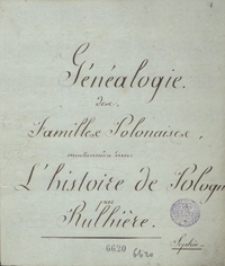 Généalogie.
des
Familles Polonaises,
mentionnées dans
L'histoire de Pologn
par
Rulhière.
Sophie.
6620
6620